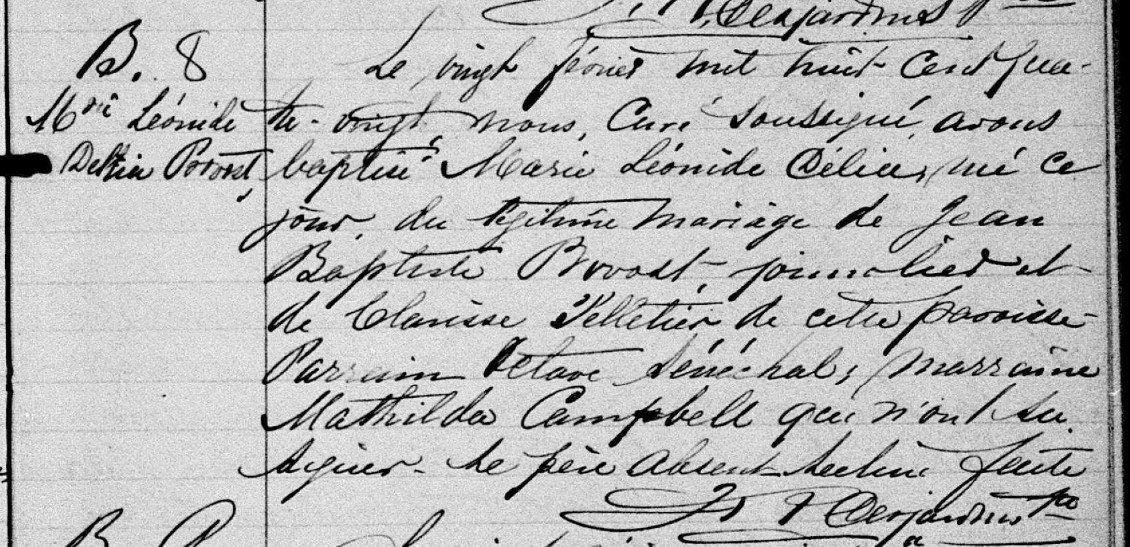 Desjardins Ptre
B. 8
Mrie Léonide
Délia Provost,
Le vingt février mil huit cent qua-
tre-vingt, nous, Curé soussigné, avons
baptisé Marie Léonide Délia, né ce
jour, du légitime mariage de Jean
Baptiste Provost, journalier et
de Clarisse Pelletier de cette paroisse-
Parrain Octave Sénéchal, marraine
Mathilda Campbell qui n'ont su
signer- Le père absent- Lecture faite
Desjardins Ptre
B.